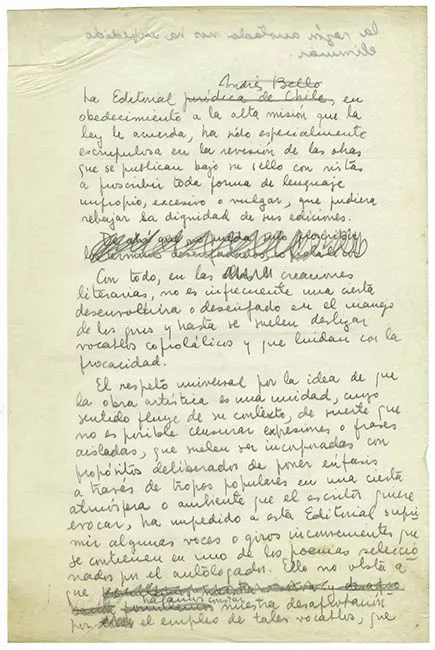 la razón anotada nos ha impedido
eliminar.
Andrés Bello
La Editorial jurídica de Chile, en
obedecimiento a la alta misión que la
ley le acuerda, ha sido especialmente
escrupulosa en la revisión de las obras
que se publican bajo su sello con vistas
a proscribir toda forma de lenguaje
impropio, excesivo o vulgar, que pudiera
rebajar la dignidad de sus ediciones.
Con todo, en las creaciones
literarias, no es infrecuente una cierta
desenvoltura o desenfado en el manejo
de los giros y hasta se suelen deslizar
vocablos coprolálicos y que lindan con la
procacidad.
El respeto universal por la idea de que
la obra artística es una unidad, cuyo
sentido fluye de su contexto, de suerte que
no es posible censurar expresiones o frases
aisladas, que suelen ser incorporadas con
propósitos deliberados de poner énfasis
a través de tropos populares en una cierta
atmósfera o ambiente que el escritor quiere
evocar, ha impedido a esta Editorial supri
mir algunas voces o giros inconvenientes que
se contienen en uno de los poemas seleccio
nados por el antólogador. Ello no obsta a
que
hagamos constar
nuestra desaprobación
por el empleo de tales vocablos, que